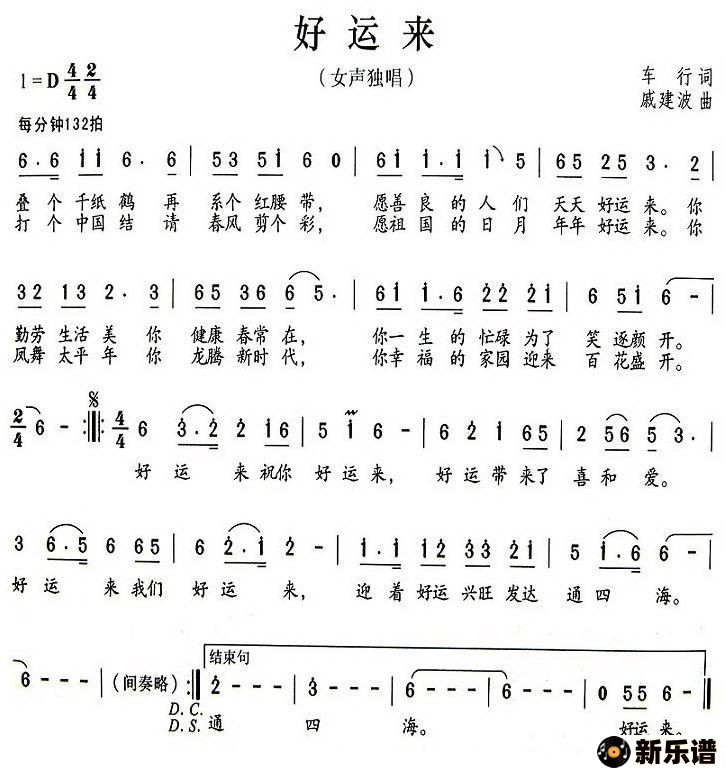 好运来
（女声独唱）
1=D 4/4 2/4
车 行 词
戚建波 曲
每分钟132拍
6·6 i i 6· 6 | 53 5i 6 0 | 6i i·i i 5 | 65 25 3· 2 |
叠个千纸鹤再 系个红腰带， 愿善良的人们 天天好运来。你
打个中国结请 春风剪个彩， 愿祖国的日月 年年好运来。你
32 13 2· 3 | 65 36 6 5· | 6i i·6 22 2i | 6 5i 6 |
勤劳生活美你 健康春常在， 你一生的忙碌为了 笑逐颜开。
凤舞太平年你 龙腾新时代， 你幸福的家园迎来 百花盛开。
2/4 6 - :‖: 4/4 6 3·2 2 i6 | 5 i 6 - | 6 2 i 65 | 2 56 5 3· |
好运来祝你 好运来， 好运带来了 喜和爱。
3 6·5 6 65 | 6 2·i 2 - | i·i i2 33 2i | 5 i·6 6 |
好运来我们 好运来， 迎着好运兴旺发达 通四海。
6 - - - | （间奏略） :‖ 2 - - - | 3 - - - | 6 - - - | 6 - - - | 0 55 6 0 ‖
结束句
D.C.
D.S. 通 四 海。 好运来。
新乐谱